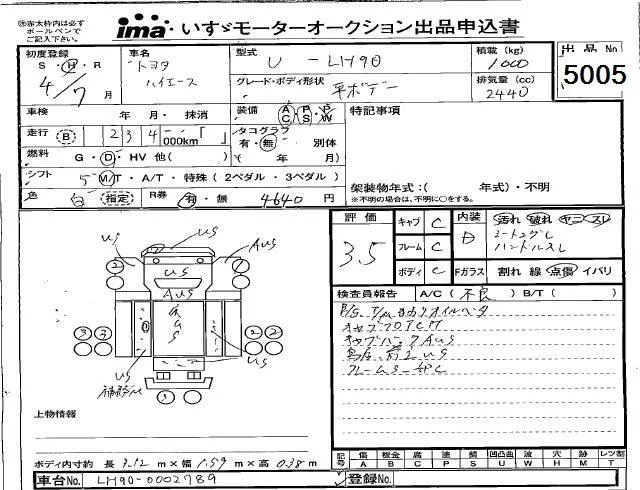 ※赤太枠内は必ず
ボールペンで
ご記入下さい。
ima いすゞモーターオークション出品申込書
出品No
5005
初度登録
S・H・R
4/7月
車名
トヨタ
ハイエース
型式
U-LH90
積載(kg)
1000
グレード・ボディ形状
平ボデー
排気量(cc)
2440
車検 年 月・抹消
走行 B 234,000km
装備 AC PS PW
タコグラフ
有・無 別体
( 年 月)
特記事項
燃料 G・D・HV 他( )
シフト 5 M/T・A/T・特殊(2ペダル・3ペダル)
色 白 指定 R券 有・無 4640円
架装物年式:( 年式)・不明
※不明の場合は、不明に○をする。
評価
3.5
キャブ C
フレーム C
ボディ C
内装 D
汚れ 破れ ヤニ・スレ
シートコゲ、し
ハンドルスレ
Fガラス 割れ 線 点傷 イバリ
検査員報告 A/C(不良) B/T( )
キャブフロTCM
キャブバックAUS
鳥居、前2US
フレームS-部C
US
US
AUS
US
AUS
US
US
2
2
3
3
2
2
上物情報
ボディ内寸約 長 3.12 m×幅 1.59 m×高 0.38 m
記号
傷 板金 腐 塗 錆 凹凸曲 波 穴 跡 レツ割
A B C P S U W H M T
車台No. LH90-0002789
登録No.